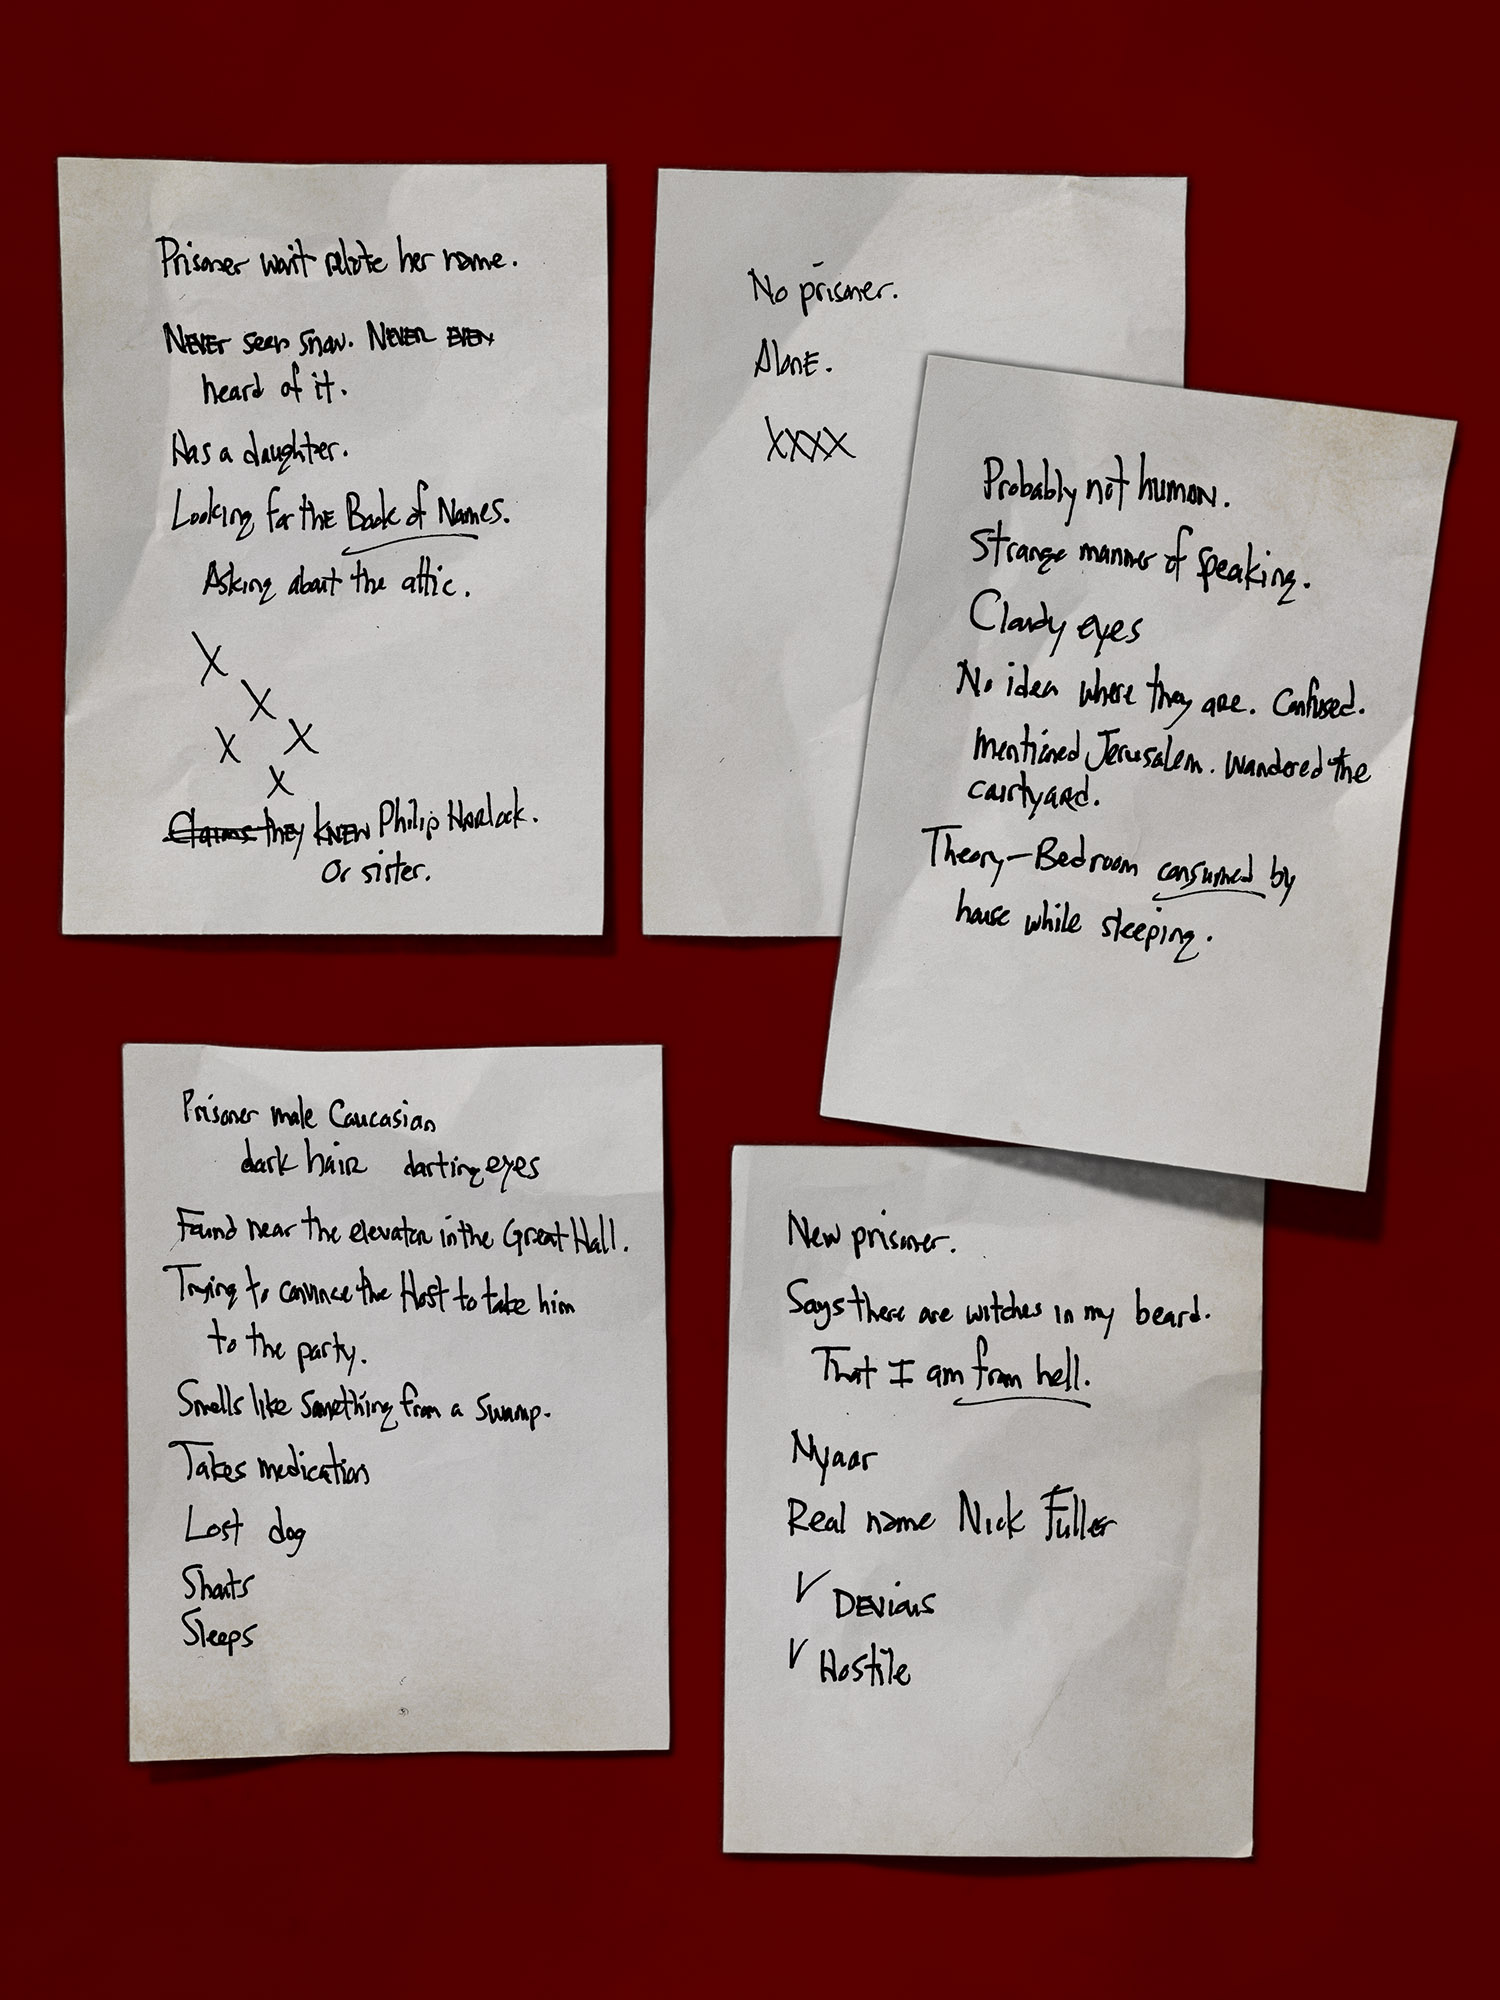 Prisoner won't relate her name.
NEVER seen snow. NEVER EVEN
heard of it.
Has a daughter.
Looking for the Book of Names.
Asking about the attic.
X
X
X X
X
Claims they KNEW Philip Harlock.
Or sister.
No prisoner.
Alone.
XXXX
Probably not human.
Strange manner of speaking.
Cloudy eyes
No idea where they are. Confused.
Mentioned Jerusalem. Wandered the
courtyard.
Theory-Bedroom consumed by
house while sleeping.
Prisoner male Caucasian
dark hair darting eyes
Found near the elevator in the Great Hall.
Trying to convince the Host to take him
to the party.
Smells like something from a swamp.
Takes medication
Lost dog
Shouts
Sleeps
New prisoner.
Says there are witches in my beard.
That I am from hell.
Nyaar
Real name Nick Fuller
✓ Devious
✓ Hostile